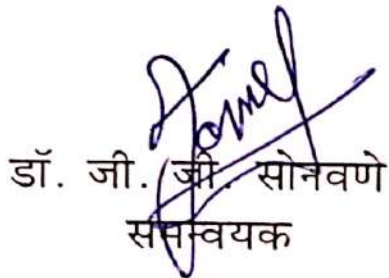 डॉ. जी. जी. सोनवणे
समन्वयक